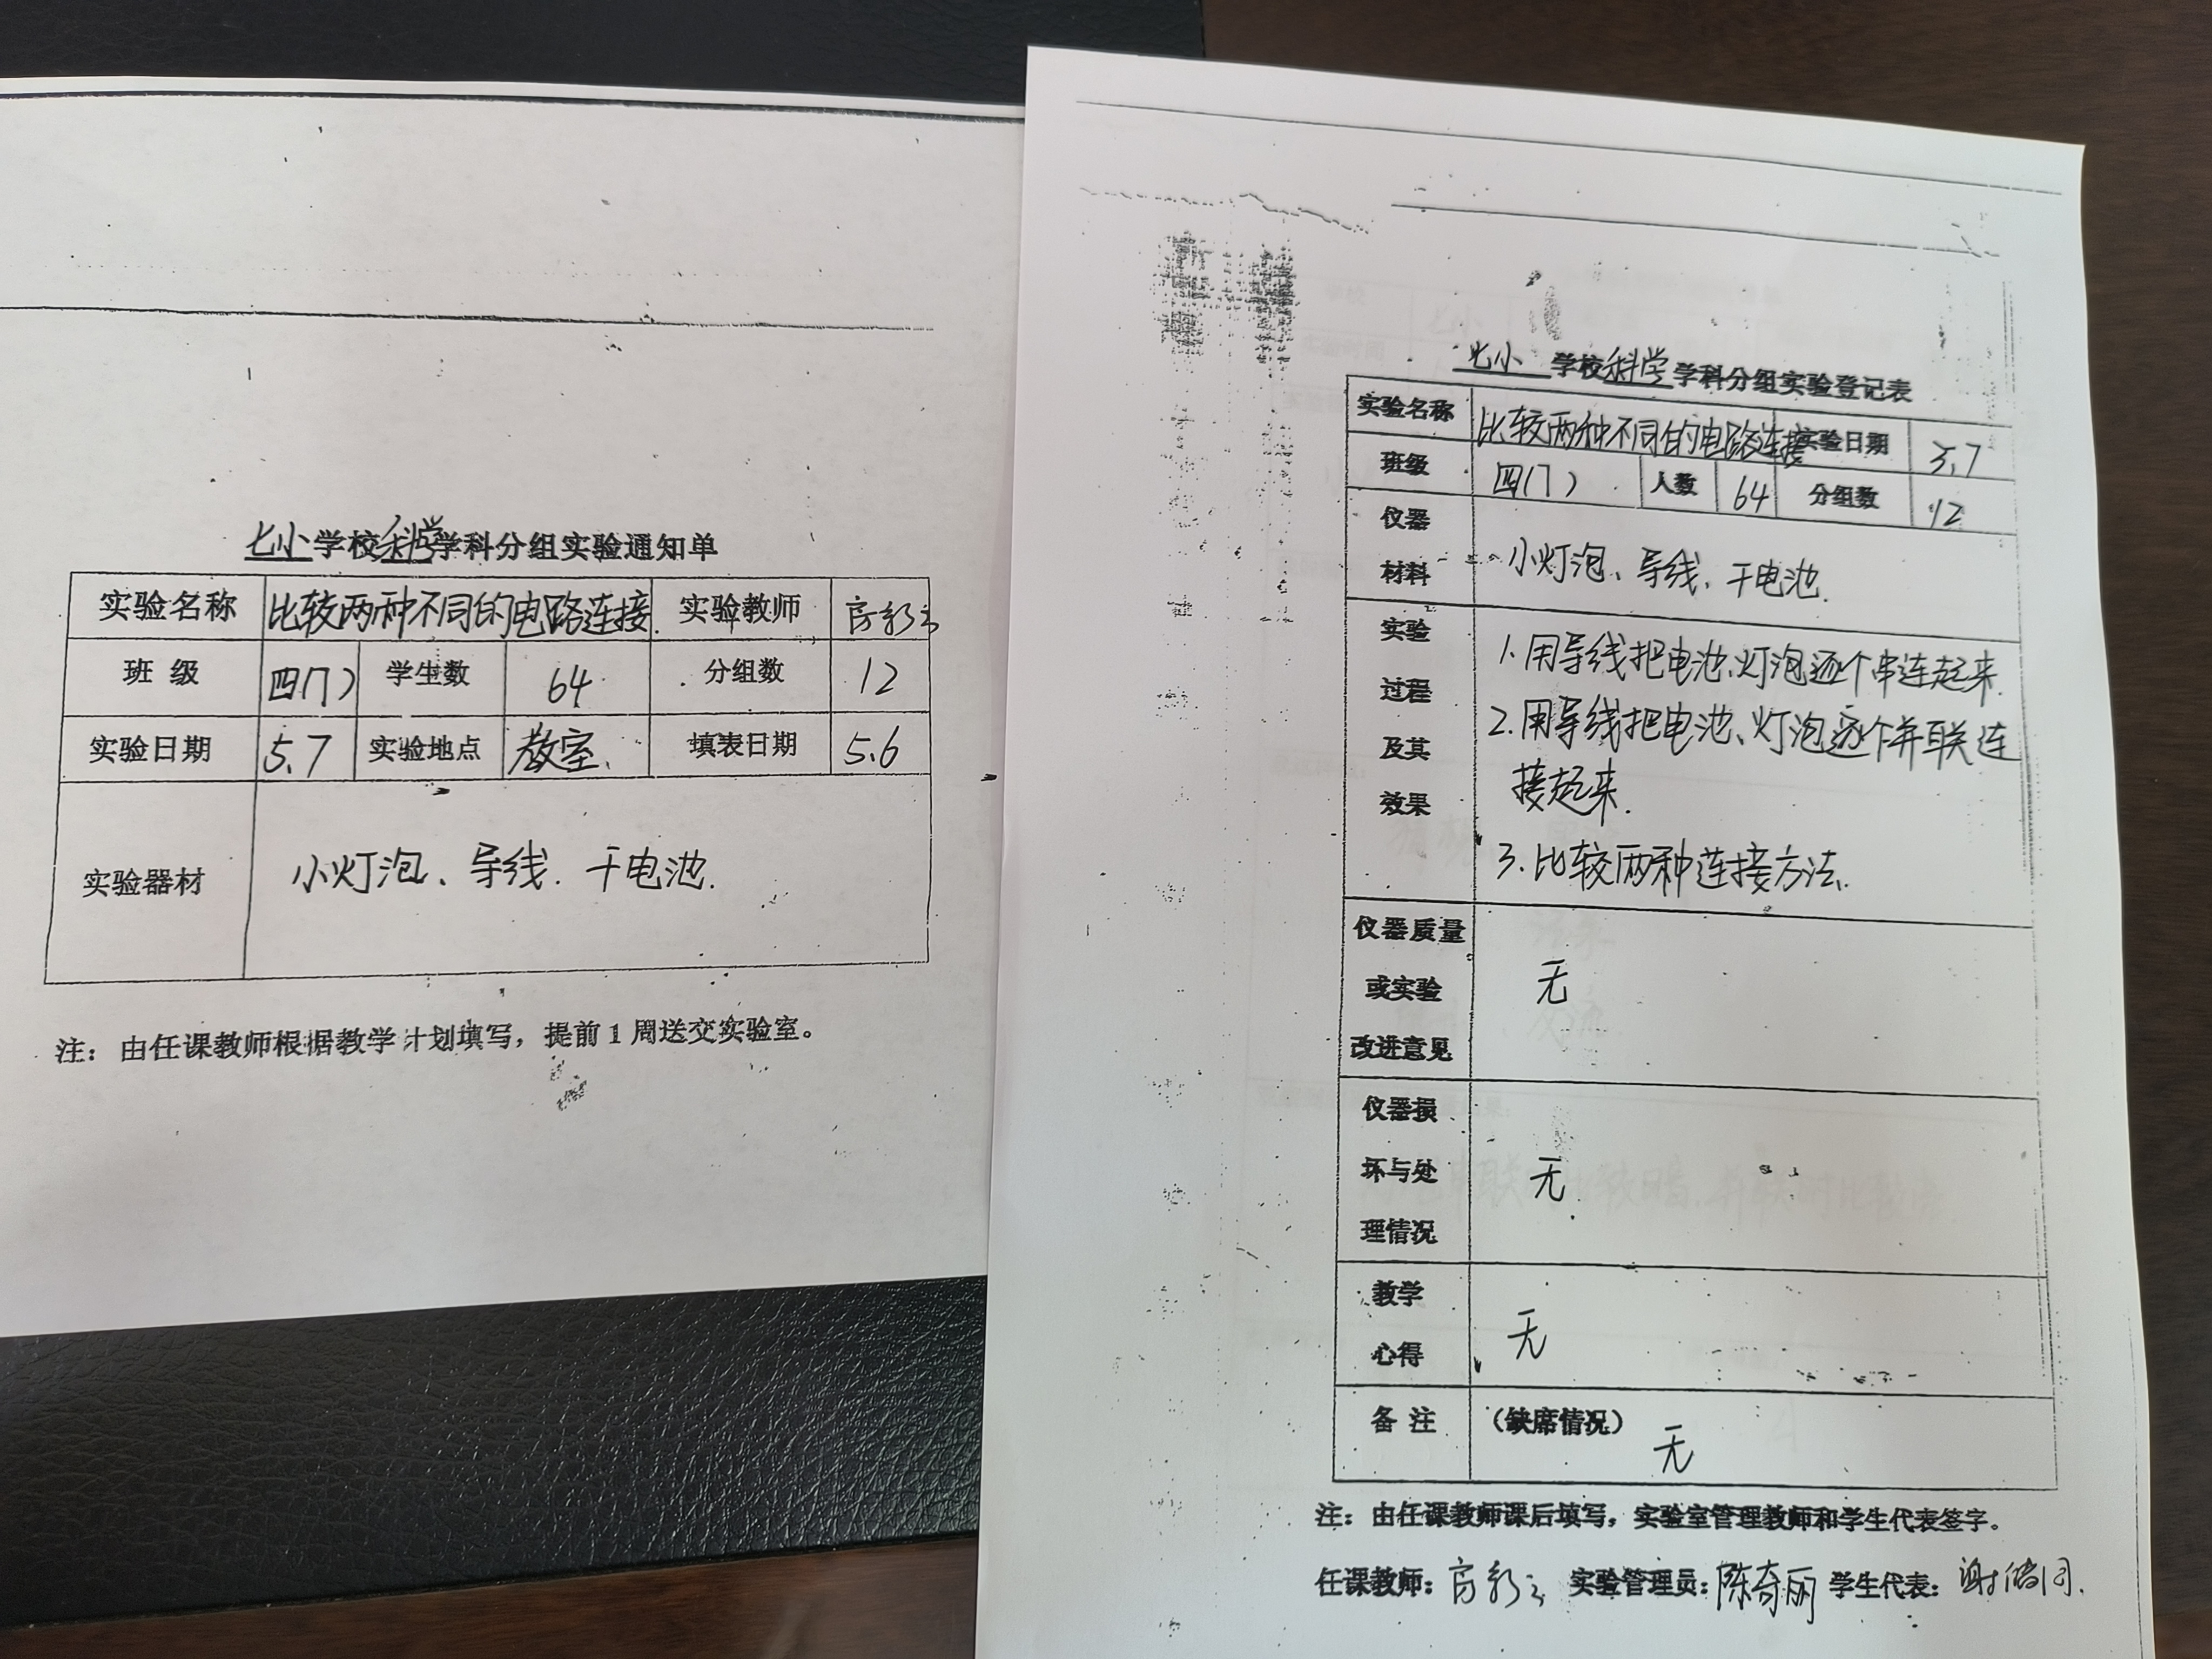 七小学校科学学科分组实验通知单
实验名称 比较两种不同的电路连接. 实验教师
班 级 四(7) 学生数 64 分组数 12
实验日期 5.7 实验地点 教室. 填表日期 5.6
实验器材 小灯泡、导线、干电池.
注：由任课教师根据教学计划填写，提前1周送交实验室。
七小学校科学学科分组实验登记表
实验名称 比较两种不同的电路连接 实验日期 5.7
班级 四(7) 人数 64 分组数 12
仪器
材料
小灯泡、导线、干电池.
实验
过程
及其
效果
1.用导线把电池、灯泡逐个串连起来.
2.用导线把电池、灯泡逐个并联连
接起来.
3.比较两种连接方法.
仪器质量
或实验
改进意见
无
仪器损
坏与处
理情况
无
教学
心得
无
备 注 （缺席情况）
无
注：由任课教师课后填写，实验室管理教师和学生代表签字。
任课教师： 实验管理员：陈奇丽 学生代表：